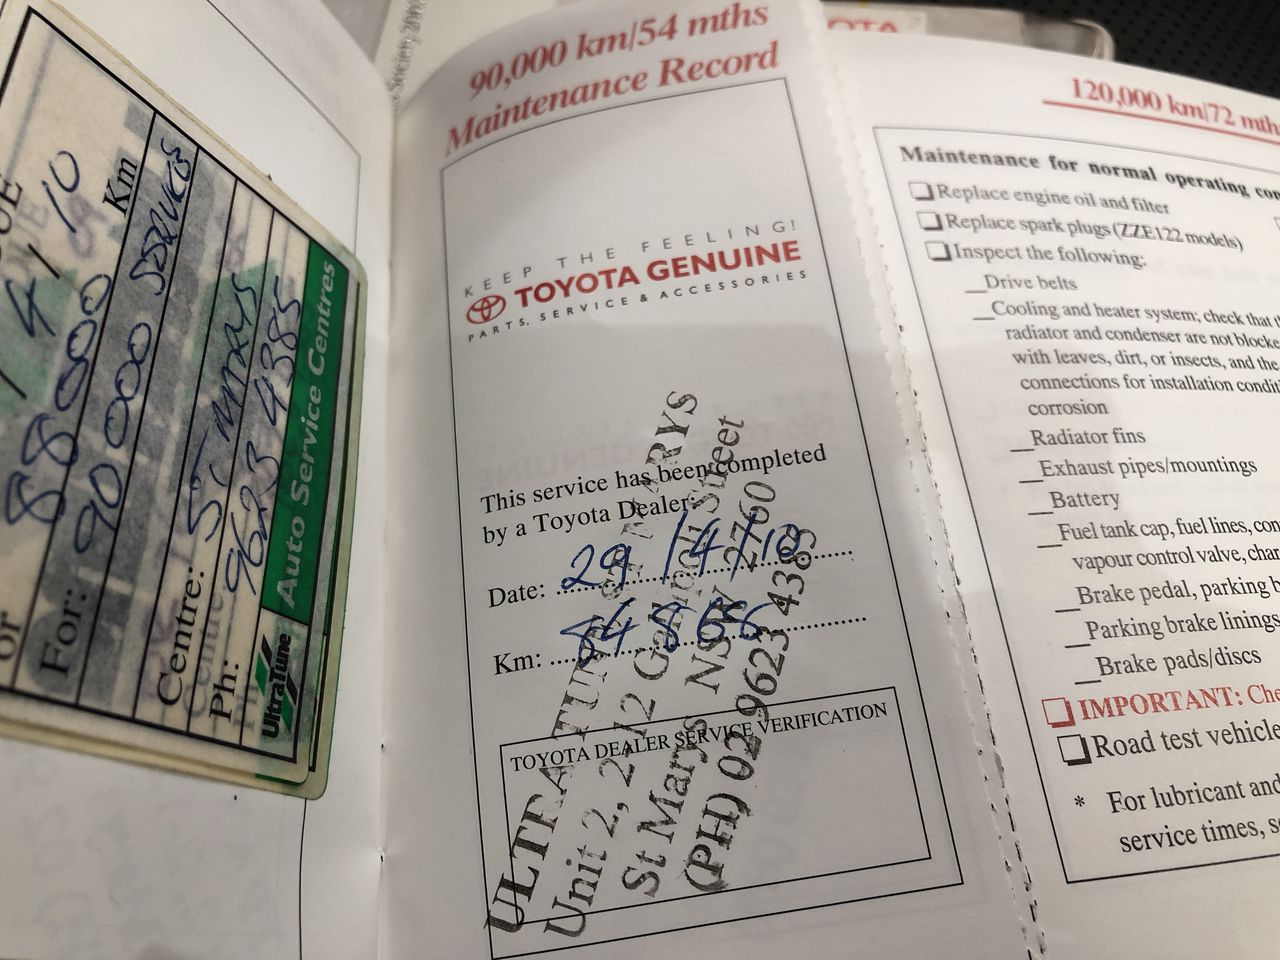 Society 200
DUE
/ 4 / 10
or 88000 Km
For: 90 000 SERVICE
Centre: ST MARYS
Ph: 9623 4385
UltraTune Auto Service Centres
90,000 km/54 mths
Maintenance Record
KEEP THE FEELING!
TOYOTA GENUINE
PARTS, SERVICE & ACCESSORIES
This service has been completed
by a Toyota Dealer:
Date: 29/4/10
Km: 84866
TOYOTA DEALER SERVICE VERIFICATION
ULTRA TUNE ST MARYS
Unit 2, 212 Street
St Marys NSW 2760
(PH) 02 9623 4385
TOYOTA
120,000 km/72 mth
Maintenance for normal operating con
Replace engine oil and filter
Replace spark plugs (ZZE122 models)
Inspect the following:
Drive belts
Cooling and heater system; check that t
radiator and condenser are not blocke
with leaves, dirt, or insects, and the
connections for installation condit
corrosion
Radiator fins
Exhaust pipes/mountings
Battery
Fuel tank cap, fuel lines, con
vapour control valve, char
Brake pedal, parking b
Parking brake linings
Brake pads/discs
IMPORTANT: Che
Road test vehicle
* For lubricant and
service times, s